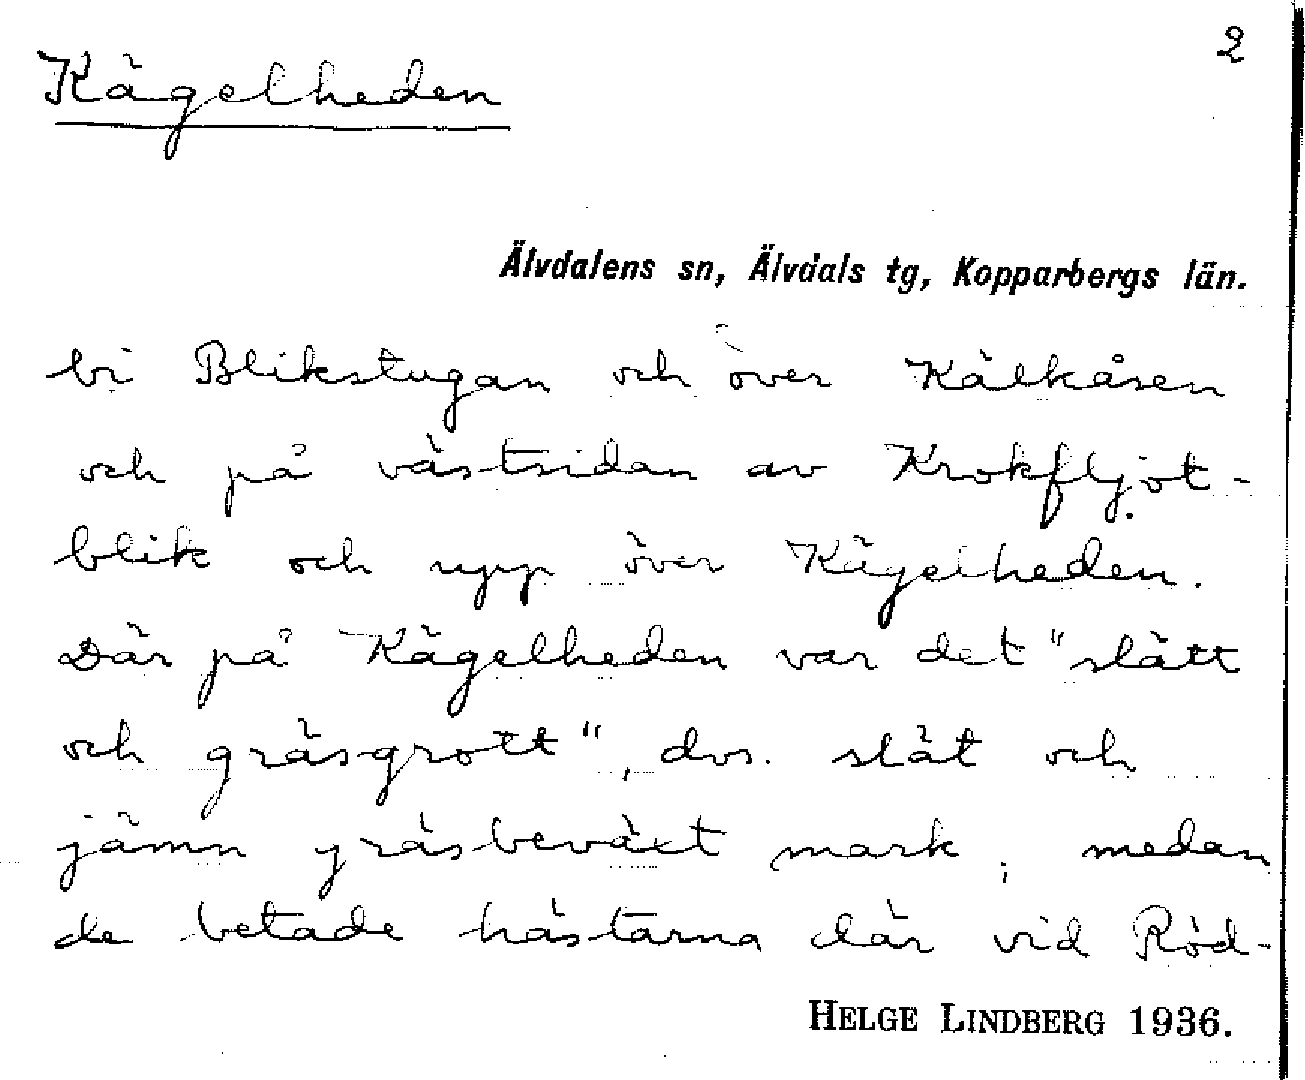 2
Kägelheden
Älvdalens sn, Älvdals tg, Kopparbergs län.
bi Blikstugan och över Kälkåsen
och på västsidan av Krokfljot-
blik och upp över Kägelheden.
Där på Kägelheden var det "slätt
och gräsgrott", dvs. slät och
jämn gräsbeväxt mark; medan
de betade hästarna där vid Röd-
HELGE LINDBERG 1936.